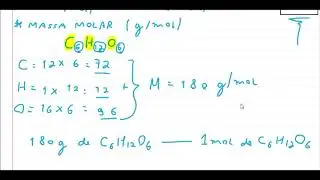 * MASSA MOLAR (g/mol)
C6H12O6
C = 12 x 6 = 72
H = 1 x 12 = 12
O = 16 x 6 = 96
M = 180 g/mol
180g de C6H12O6 —— 1 mol de C6H12O6